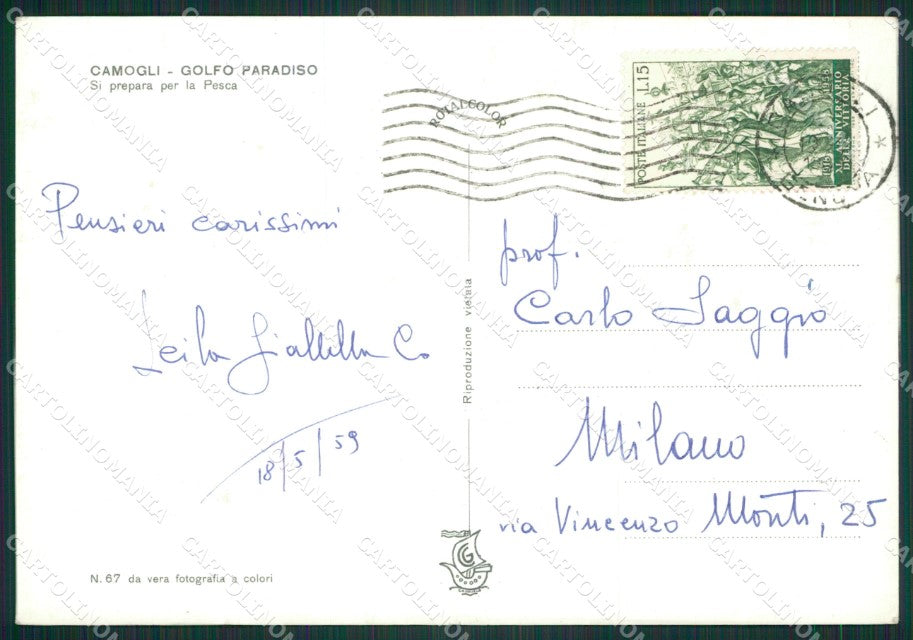 CAMOGLI - GOLFO PARADISO
Si prepara per la Pesca
ROYALCOLOR
POSTE ITALIANE L.15
XL ANNIVERSARIO
DELLA VITTORIA
Pensieri carissimi
Leila
18/5/59
Riproduzione vietata
prof.
Carlo Saggio
Milano
via Vincenzo Monti, 25
N. 67 da vera fotografia a colori
CG
CARTOLINOMANIA